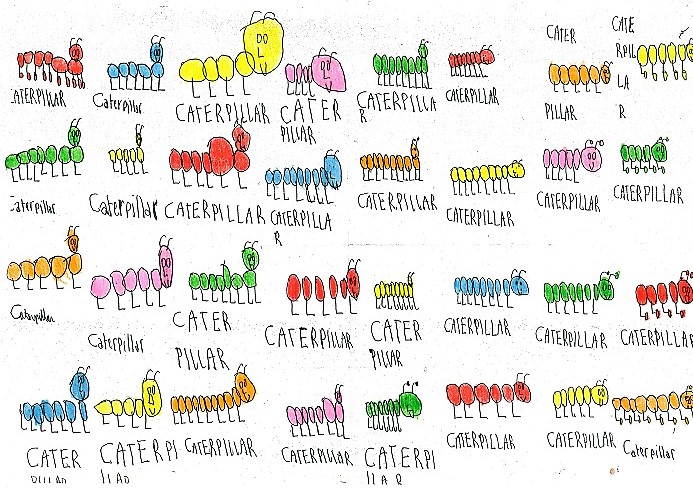 CATERPILLAR
Caterpillar
CATERPILLAR
CATER
PILLAR
CATERPILLA
R
CATERPILLAR
CATER
PILLAR
CATE
RPIL
LA
R
Caterpillar
Caterpillar
CATERPILLAR
CATERPILLA
R
CATERPILLAR
CATERPILLAR
CATERPILLAR
CATERPILLAR
Caterpillar
Caterpillar
CATER
PILLAR
CATERPILLAR
CATER
PILLAR
CATERPILLAR
CATERPILLAR
CATERPILLAR
CATER
PILLAR
CATERPI
LLAR
CATERPILLAR
CATERPILLAR
CATERPI
LLAR
CATERPILLAR
CATERPILLAR
Caterpillar